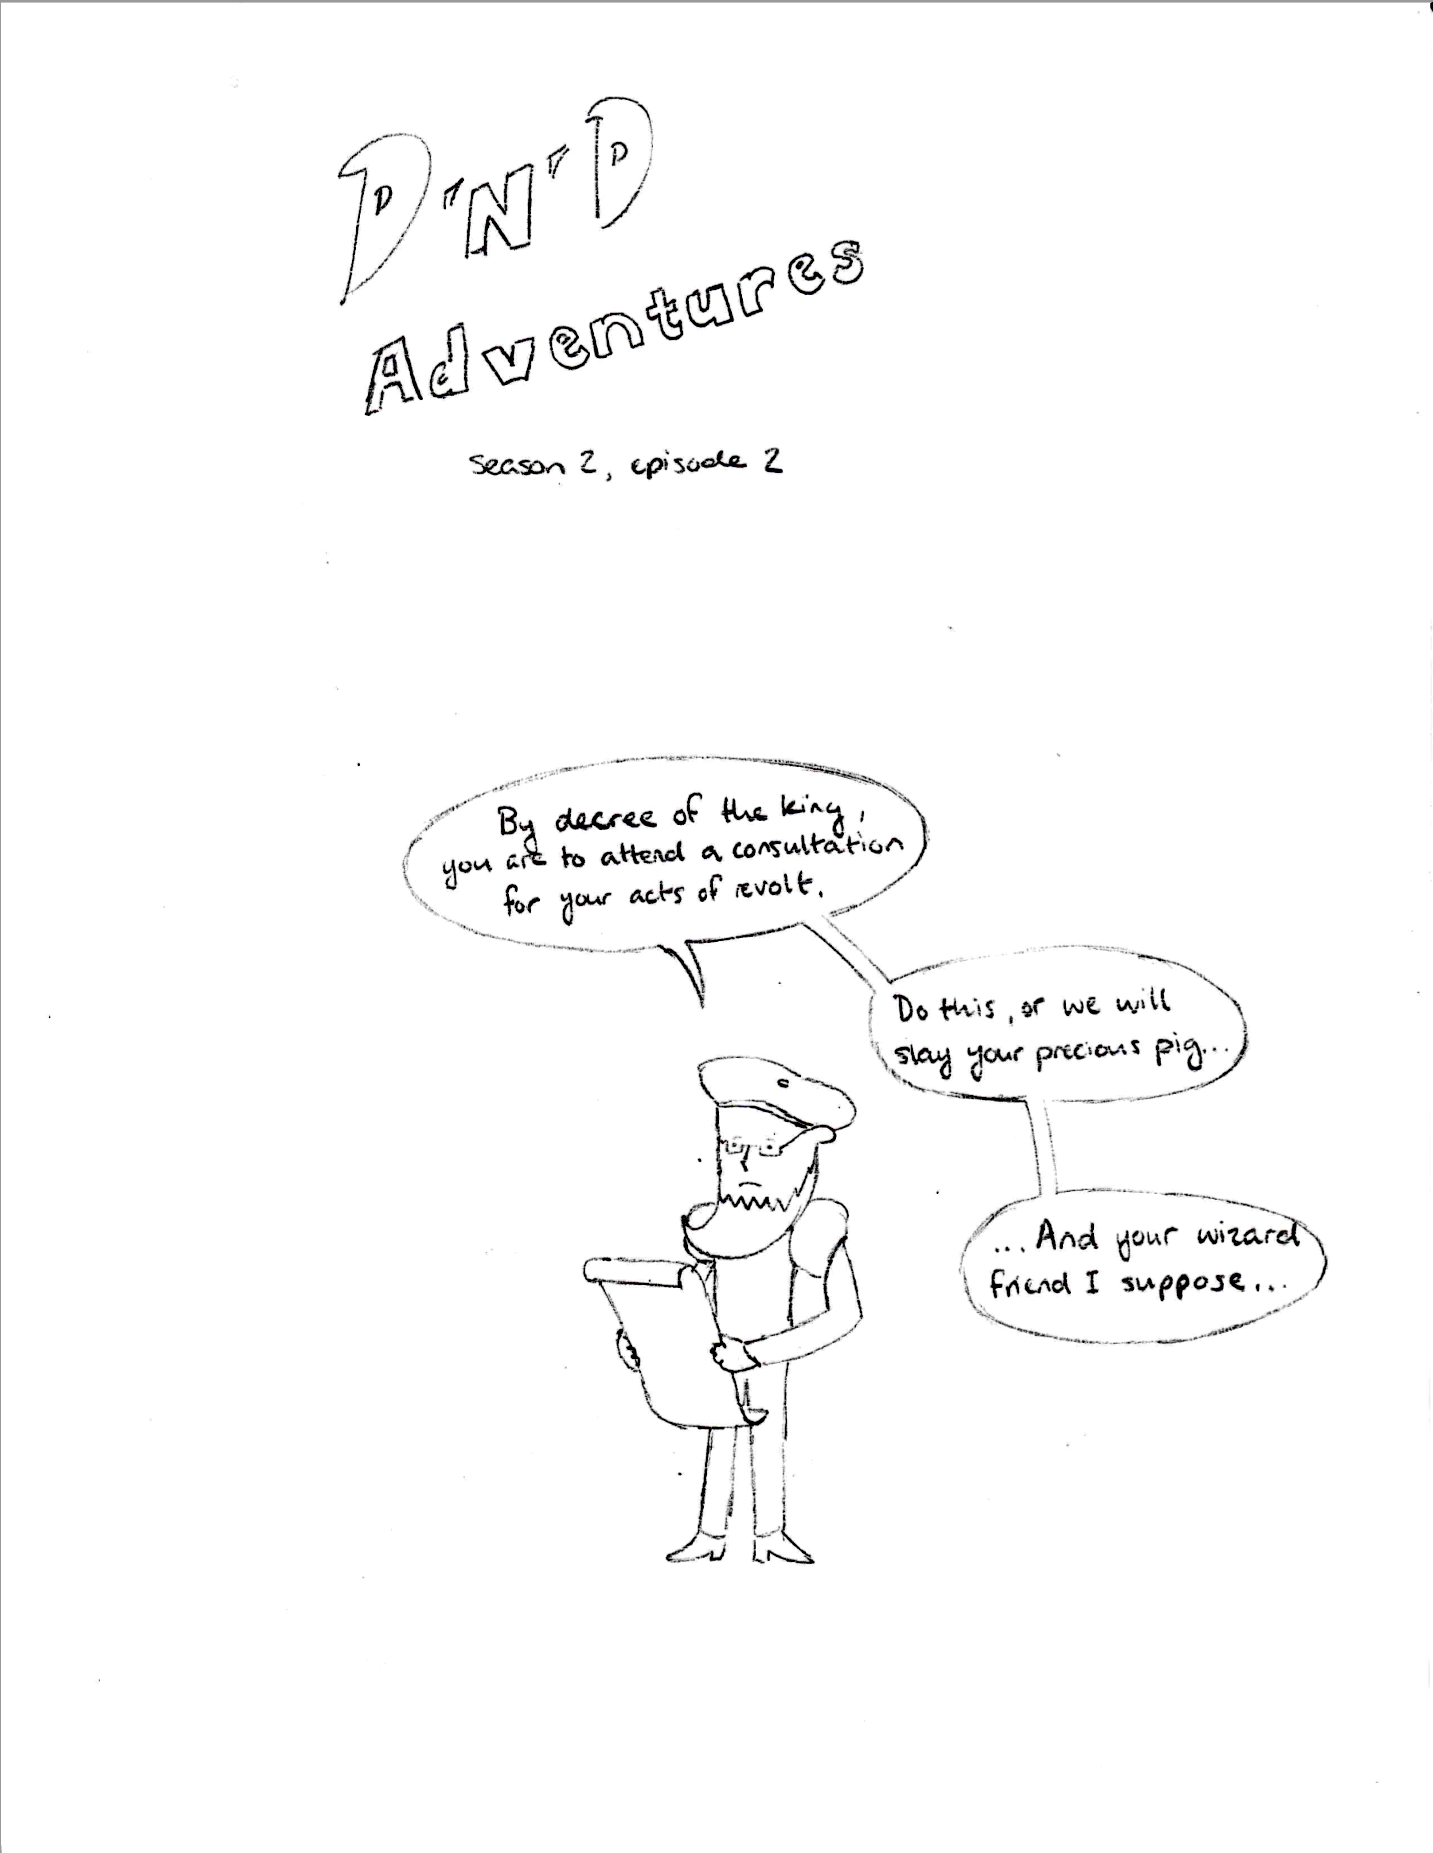 D'N'D
Adventures
Season 2, episode 2
By decree of the king,
you are to attend a consultation
for your acts of revolt.
Do this, or we will
slay your precious pig...
...And your wizard
friend I suppose...